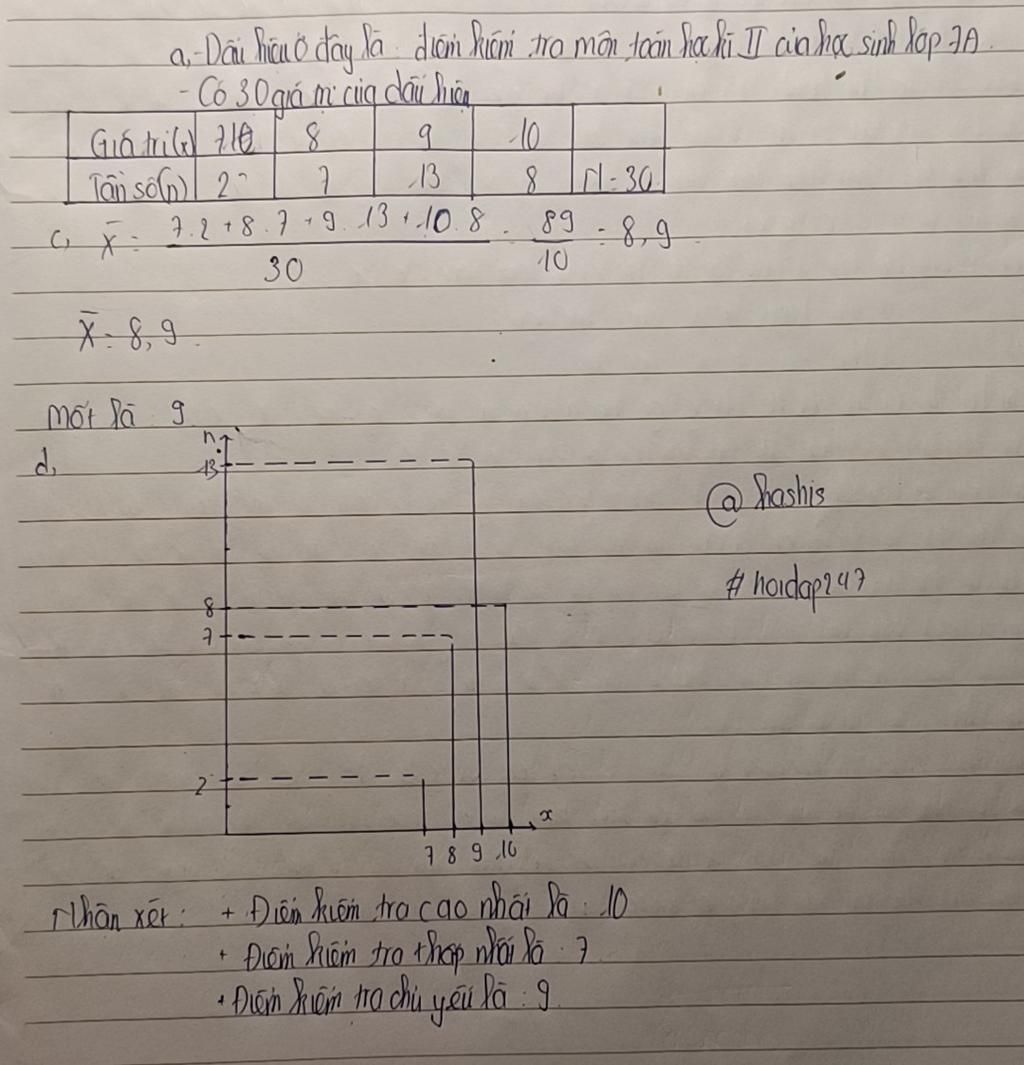 a,-Dấu hiệu ở đây là điểm kiểm tra môn toán học kì II của học sinh lớp 7A.
- Có 30 giá trị của dấu hiệu
Giá trị(x) 7 8 9 10
Tần số(n) 2 7 13 8 N=30
c, X̄ = (7.2+8.7+9.13+10.8)/30 = 89/10 = 8,9
X̄ = 8,9.
Mốt là 9
d,
n
13
8
7
2
7 8 9 10 x
@hashis
#hoidap247
Nhận xét: + Điểm kiểm tra cao nhất là: 10
+ Điểm kiểm tra thấp nhất là: 7
+ Điểm kiểm tra chủ yếu là: 9